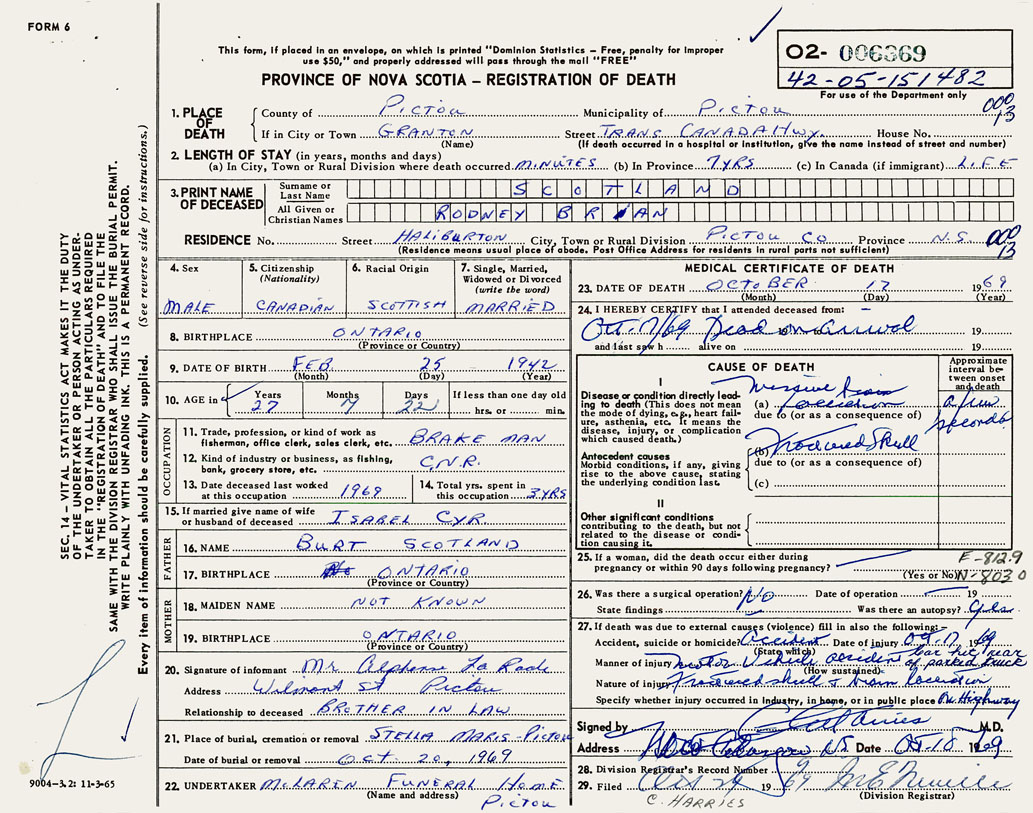 FORM 6
This form, if placed in an envelope, on which is printed "Dominion Statistics – Free, penalty for improper
use $50," and properly addressed will pass through the mail "FREE"
PROVINCE OF NOVA SCOTIA – REGISTRATION OF DEATH
02- 006369
42-05-151482
For use of the Department only
000
13
1. PLACE OF DEATH
County of PICTOU Municipality of PICTOU
If in City or Town GRANTON Street TRANS CANADA HWY. House No.
(Name) (If death occurred in a hospital or institution, give the name instead of street and number)
2. LENGTH OF STAY (in years, months and days)
(a) In City, Town or Rural Division where death occurred MINUTES (b) In Province 7 YRS (c) In Canada (if immigrant) LIFE
3. PRINT NAME OF DECEASED
Surname or Last Name SCOTLAND
All Given or Christian Names RODNEY BRIAN
RESIDENCE No. Street HALIBURTON City, Town or Rural Division PICTOU CO Province N.S. 000
13
(Residence means usual place of abode. Post Office Address for residents in rural parts not sufficient)
4. Sex MALE
5. Citizenship (Nationality) CANADIAN
6. Racial Origin SCOTTISH
7. Single, Married, Widowed or Divorced (write the word) MARRIED
8. BIRTHPLACE ONTARIO
(Province or Country)
9. DATE OF BIRTH FEB 25 1942
(Month) (Day) (Year)
10. AGE in Years 27 Months 7 Days 22 If less than one day old hrs. or min.
OCCUPATION
11. Trade, profession, or kind of work as
fisherman, office clerk, sales clerk, etc. BRAKE MAN
12. Kind of industry or business, as fishing,
bank, grocery store, etc. C.N.R.
13. Date deceased last worked
at this occupation 1969
14. Total yrs. spent in
this occupation 3 YRS
15. If married give name of wife
or husband of deceased ISABEL CYR.
FATHER
16. NAME BURT SCOTLAND
17. BIRTHPLACE ONTARIO
(Province or Country)
MOTHER
18. MAIDEN NAME NOT KNOWN
19. BIRTHPLACE ONTARIO
(Province or Country)
20. Signature of informant Mr. Alphonse La Rade
Address Wilmont St Pictou
Relationship to deceased BROTHER IN LAW
21. Place of burial, cremation or removal STELLA MARIS-PICTOU
Date of burial or removal OCT. 20, 1969
22. UNDERTAKER MCLAREN FUNERAL HOME
(Name and address) PICTOU
MEDICAL CERTIFICATE OF DEATH
23. DATE OF DEATH OCTOBER 17 1969
(Month) (Day) (Year)
24. I HEREBY CERTIFY that I attended deceased from: –
Oct. 17/69 Dead on arrival 19
and last saw h alive on 19
CAUSE OF DEATH
Approximate interval between onset and death
I
Disease or condition directly leading to death (This does not mean the mode of dying, e.g., heart failure, asthenia, etc. It means the disease, injury, or complication which caused death.)
(a) Massive brain laceration a few seconds
due to (or as a consequence of)
Antecedent causes
Morbid conditions, if any, giving rise to the above cause, stating the underlying condition last.
(b) Fractured Skull
due to (or as a consequence of)
(c)
II
Other significant conditions
contributing to the death, but not related to the disease or condition causing it.
25. If a woman, did the death occur either during
pregnancy or within 90 days following pregnancy?
(Yes or No)
E-812.9
N-803 0
26. Was there a surgical operation? No Date of operation 19
State findings Was there an autopsy? Yes
27. If death was due to external causes (violence) fill in also the following:–
Accident, suicide or homicide? Accident Date of injury Oct. 17 1969
(State which)
Manner of injury Motor Vehicle accident car hit rear of parked truck
(How sustained)
Nature of injury Fractured skull & brain laceration
Specify whether injury occurred in Industry, in home, or in public place On Highway
Signed by M.D.
Address N.S. Date Oct-18 1969
28. Division Registrar's Record Number
29. Filed Oct 24 1969
(Division Registrar)
C. HARRIES
SEC. 14 – VITAL STATISTICS ACT MAKES IT THE DUTY
OF THE UNDERTAKER OR PERSON ACTING AS UNDER-
TAKER TO OBTAIN ALL THE PARTICULARS REQUIRED
IN THE "REGISTRATION OF DEATH" AND TO FILE THE
SAME WITH THE DIVISION REGISTRAR WHO SHALL ISSUE THE BURIAL PERMIT.
WRITE PLAINLY WITH UNFADING INK. THIS IS A PERMANENT RECORD.
Every item of information should be carefully supplied. (See reverse side for instructions.)
9004-3.2: 11-3-65